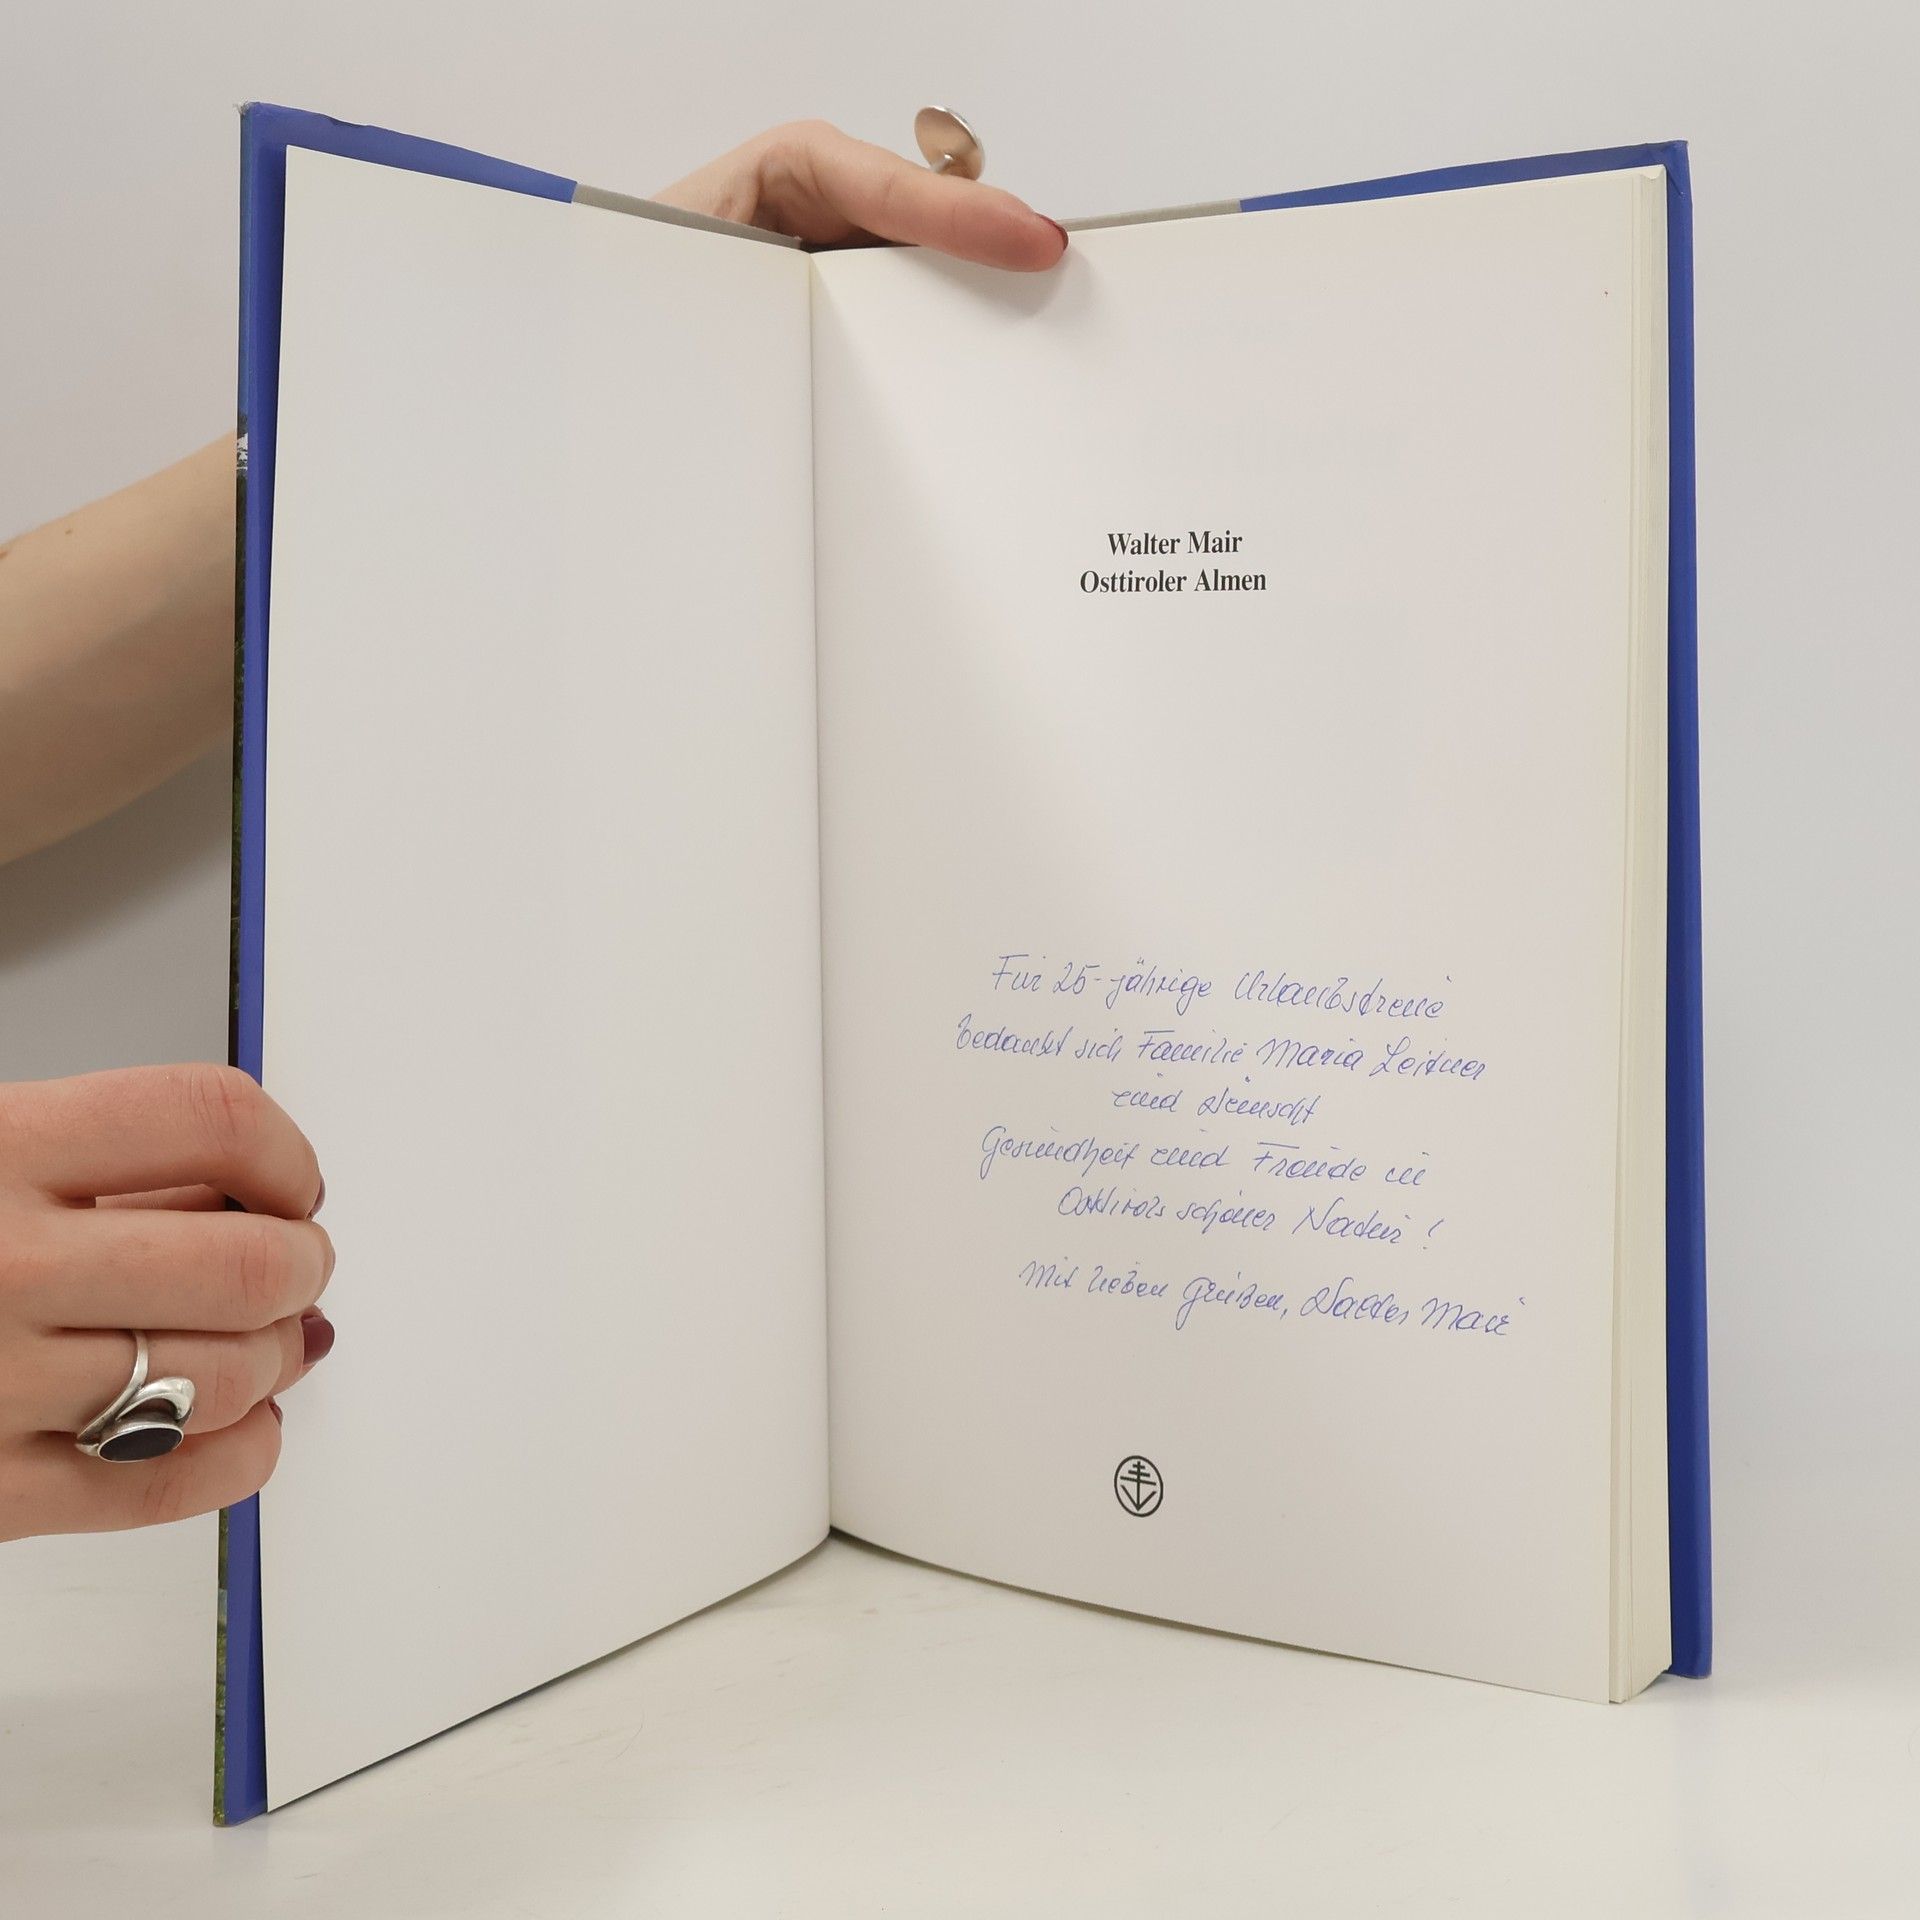 Walter Mair
Osttiroler Almen
Für 25-jährige Urlaubstreue
bedankt sich Familie Maria Leitner
und wünscht
Gesundheit und Freude in
Osttirols schöner Natur!
Mit lieben Grüßen, Walter Mair